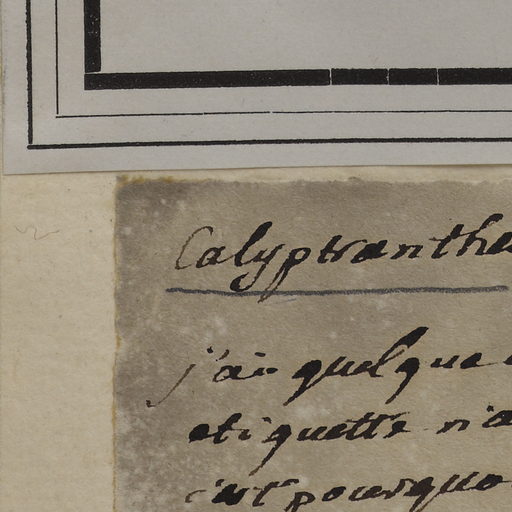 Calyptranthe
j'ai quelque
etiquette n'a
c'est pourquo